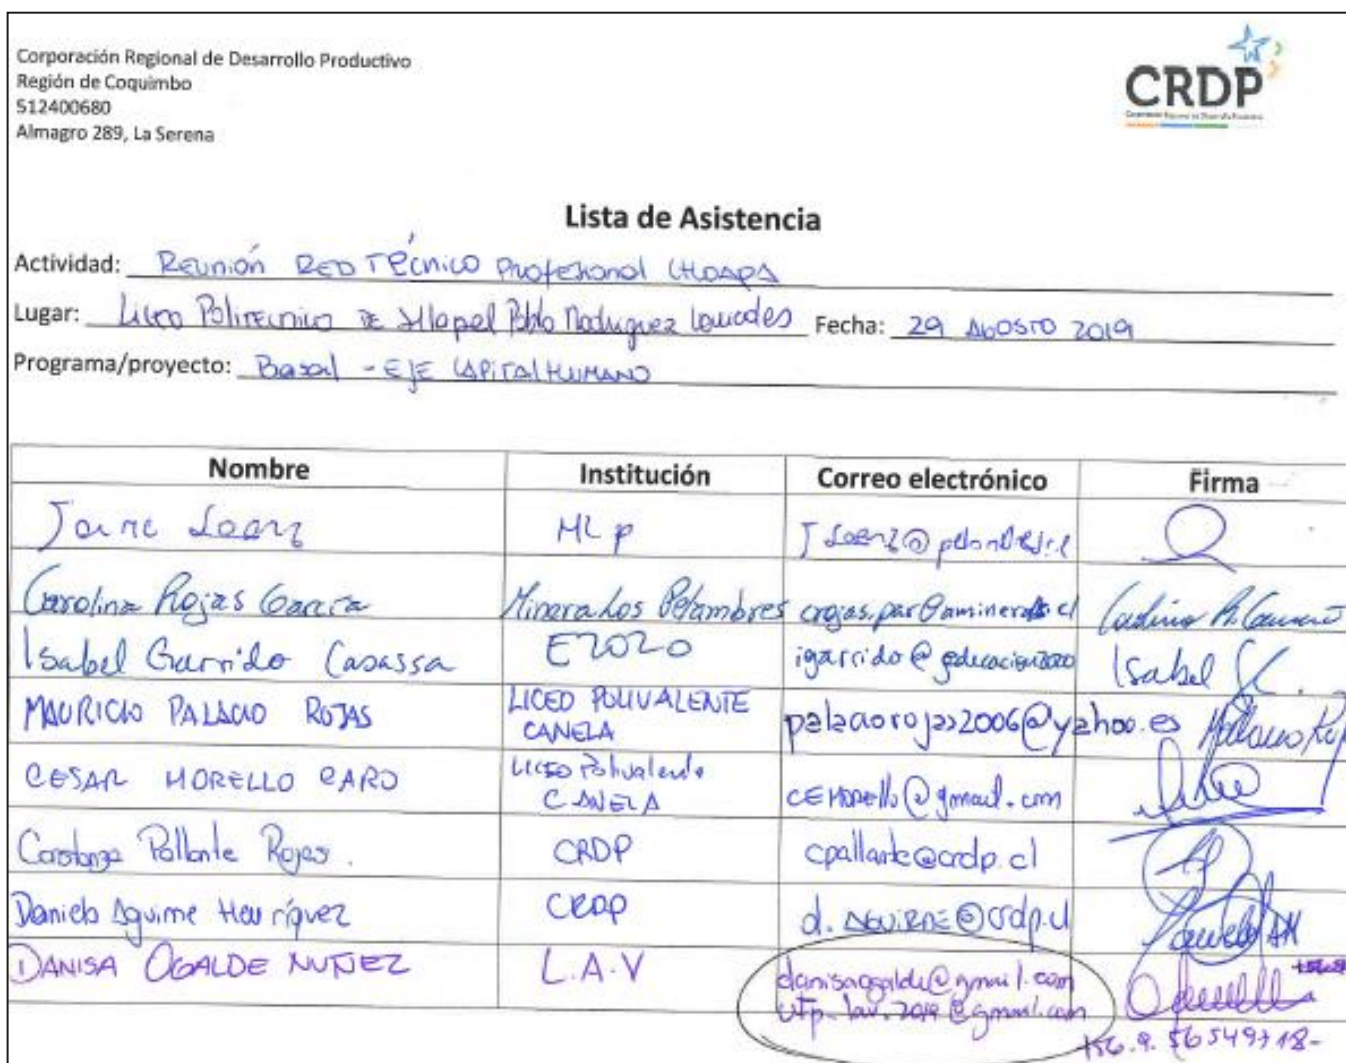 Corporación Regional de Desarrollo Productivo
Región de Coquimbo
512400680
Almagro 289, La Serena
CRDP
Lista de Asistencia
Actividad: Reunión RED Técnico Profesional CHOAPA
Lugar: Liceo Politecnico de Illapel Pablo Rodriguez Fecha: 29 AGOSTO 2019
Programa/proyecto: Basal - EJE CAPITAL HUMANO
Nombre Institución Correo electrónico Firma
MLP
Carolina Rojas García Minera Los Pelambres
Isabel Garrido Casassa E2020 igarrido@educacion2020 Isabel
MAURICIO PALACIO ROJAS LICEO POLIVALENTE CANELA palaciorojas2006@yahoo.es
CESAR MORELLO CARO LICEO Polivalente CANELA CEMorello@gmail.com
Pallante Rojas. CRDP cpallante@crdp.cl
Daniela Aguirre Henríquez CRDP d.AGUIRRE@crdp.cl
DANISA OGALDE NUÑEZ L.A.V danisaogalde@gmail.com
utp.lav.2019@gmail.com